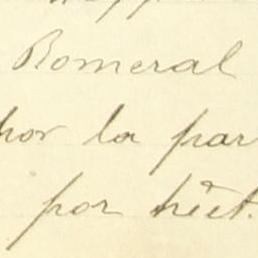 Romeral
por la par
por héct.